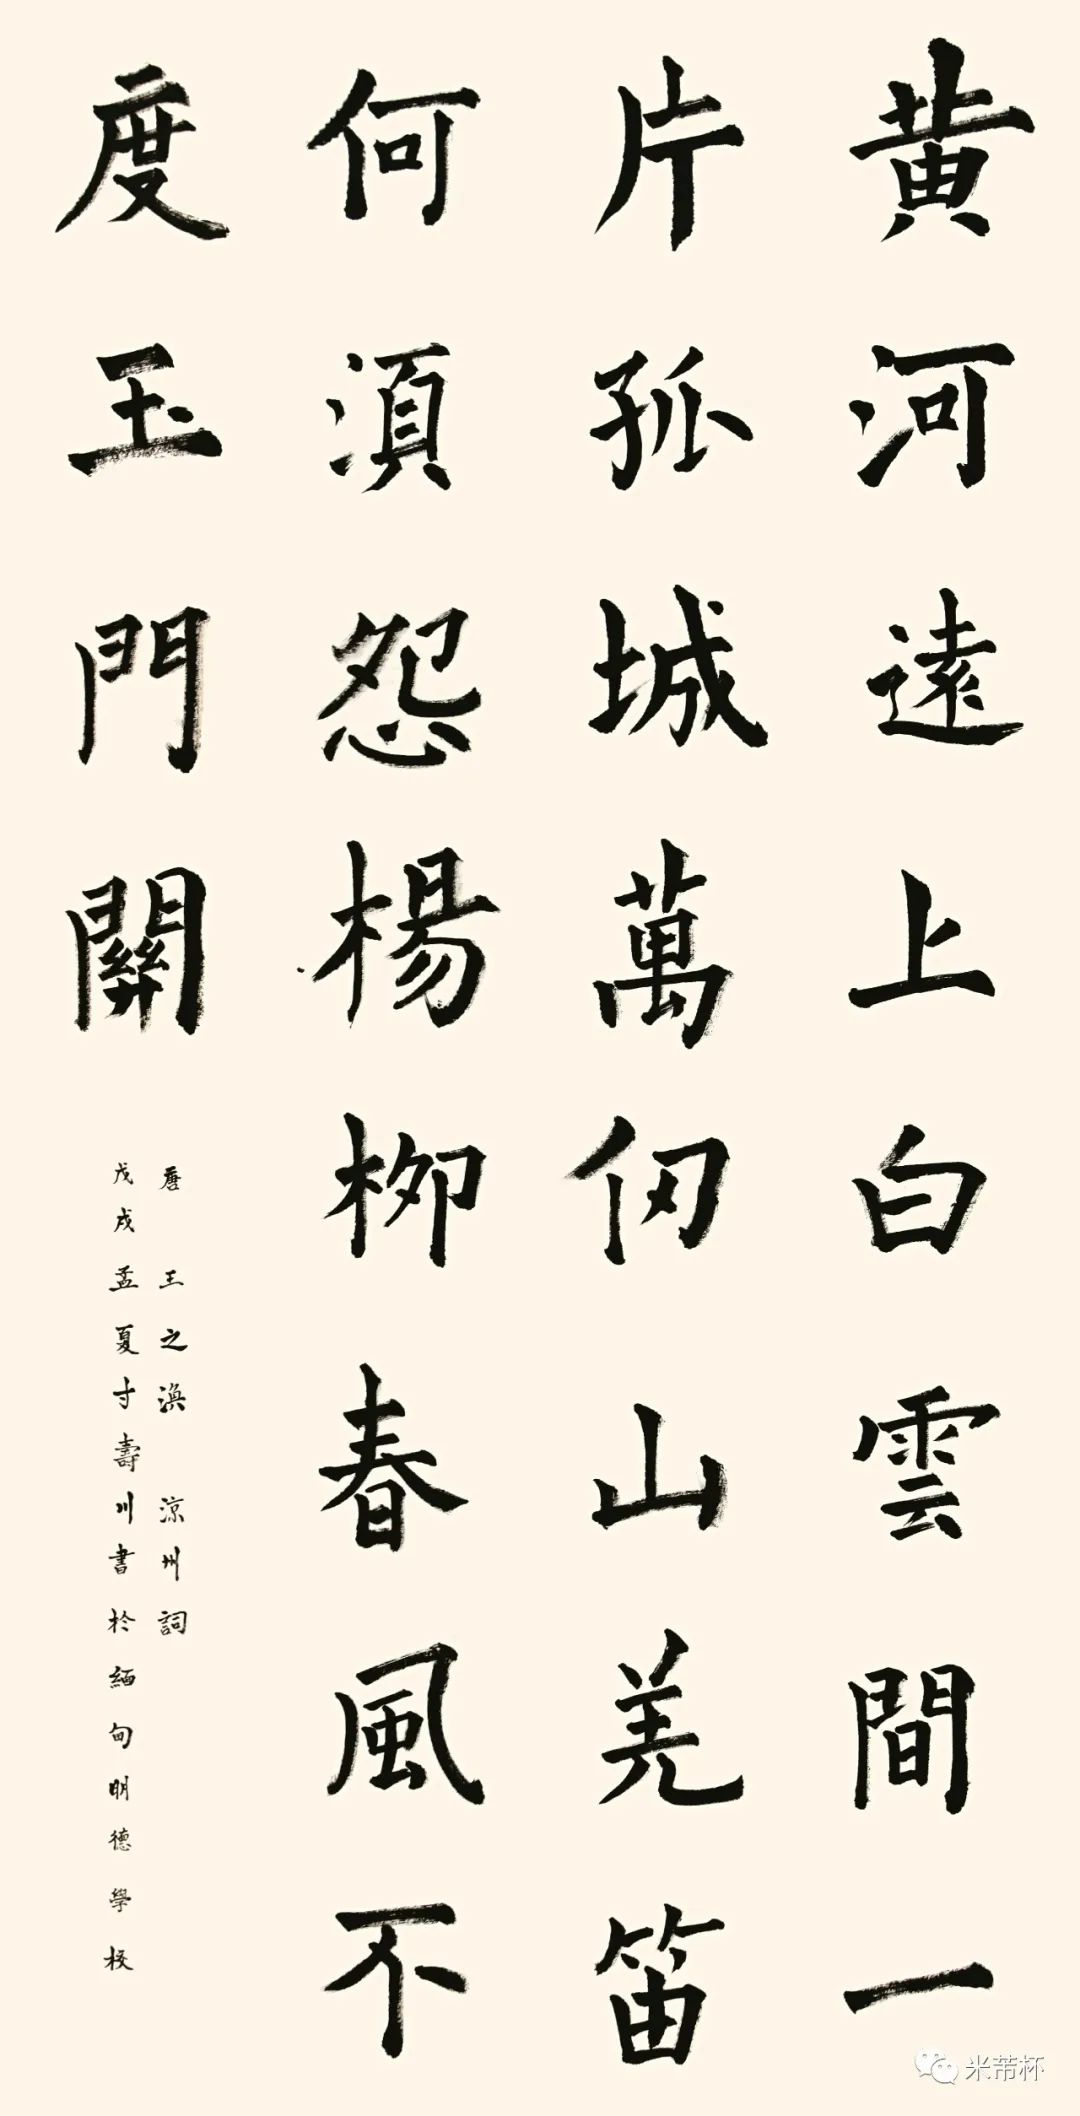 黄河遠上白雲間一
片孤城萬仞山羌笛
何湏怨楊柳春風不
度玉門關
唐 王之渙 涼州詞
戊戌孟夏寸壽川書於緬甸明德學校
米芾杯